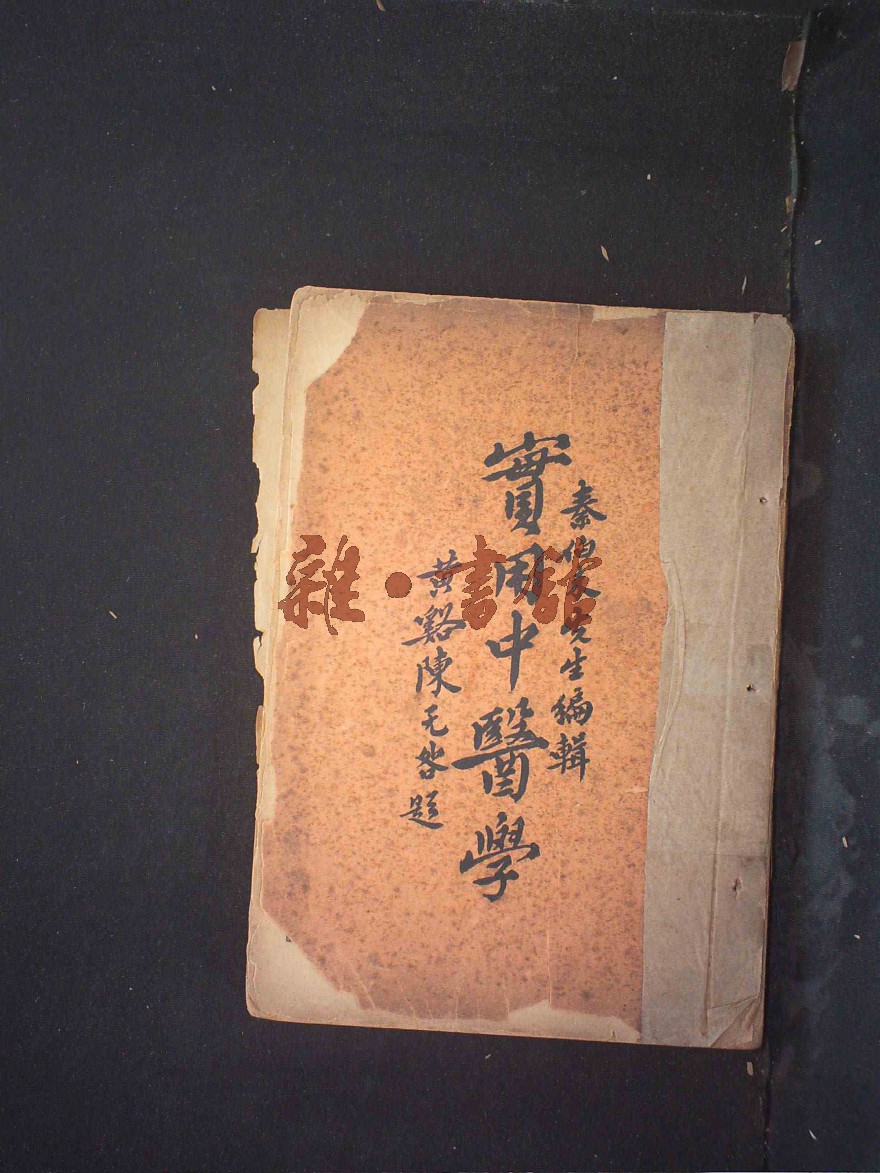 秦伯未先生編輯
實用中醫學
黃谿陳无咎題
雜·書館